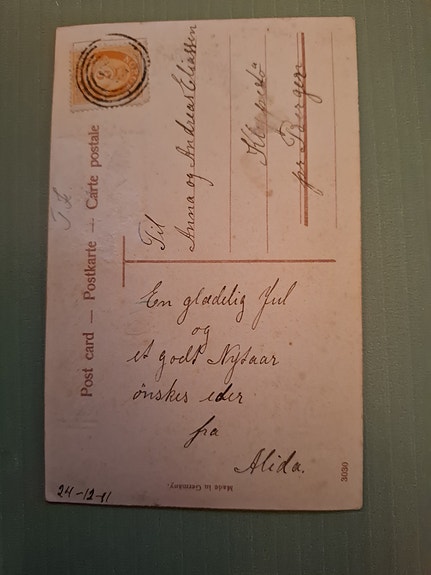 Post card — Postkarte — Carte postale
Til
Anna og Andreas Eliassen
pr Bergen
En gladelig Jul
og
et godt Nytaar
ønskes eder
fra
Alida.
24-12-11
Made in Germany.
3030